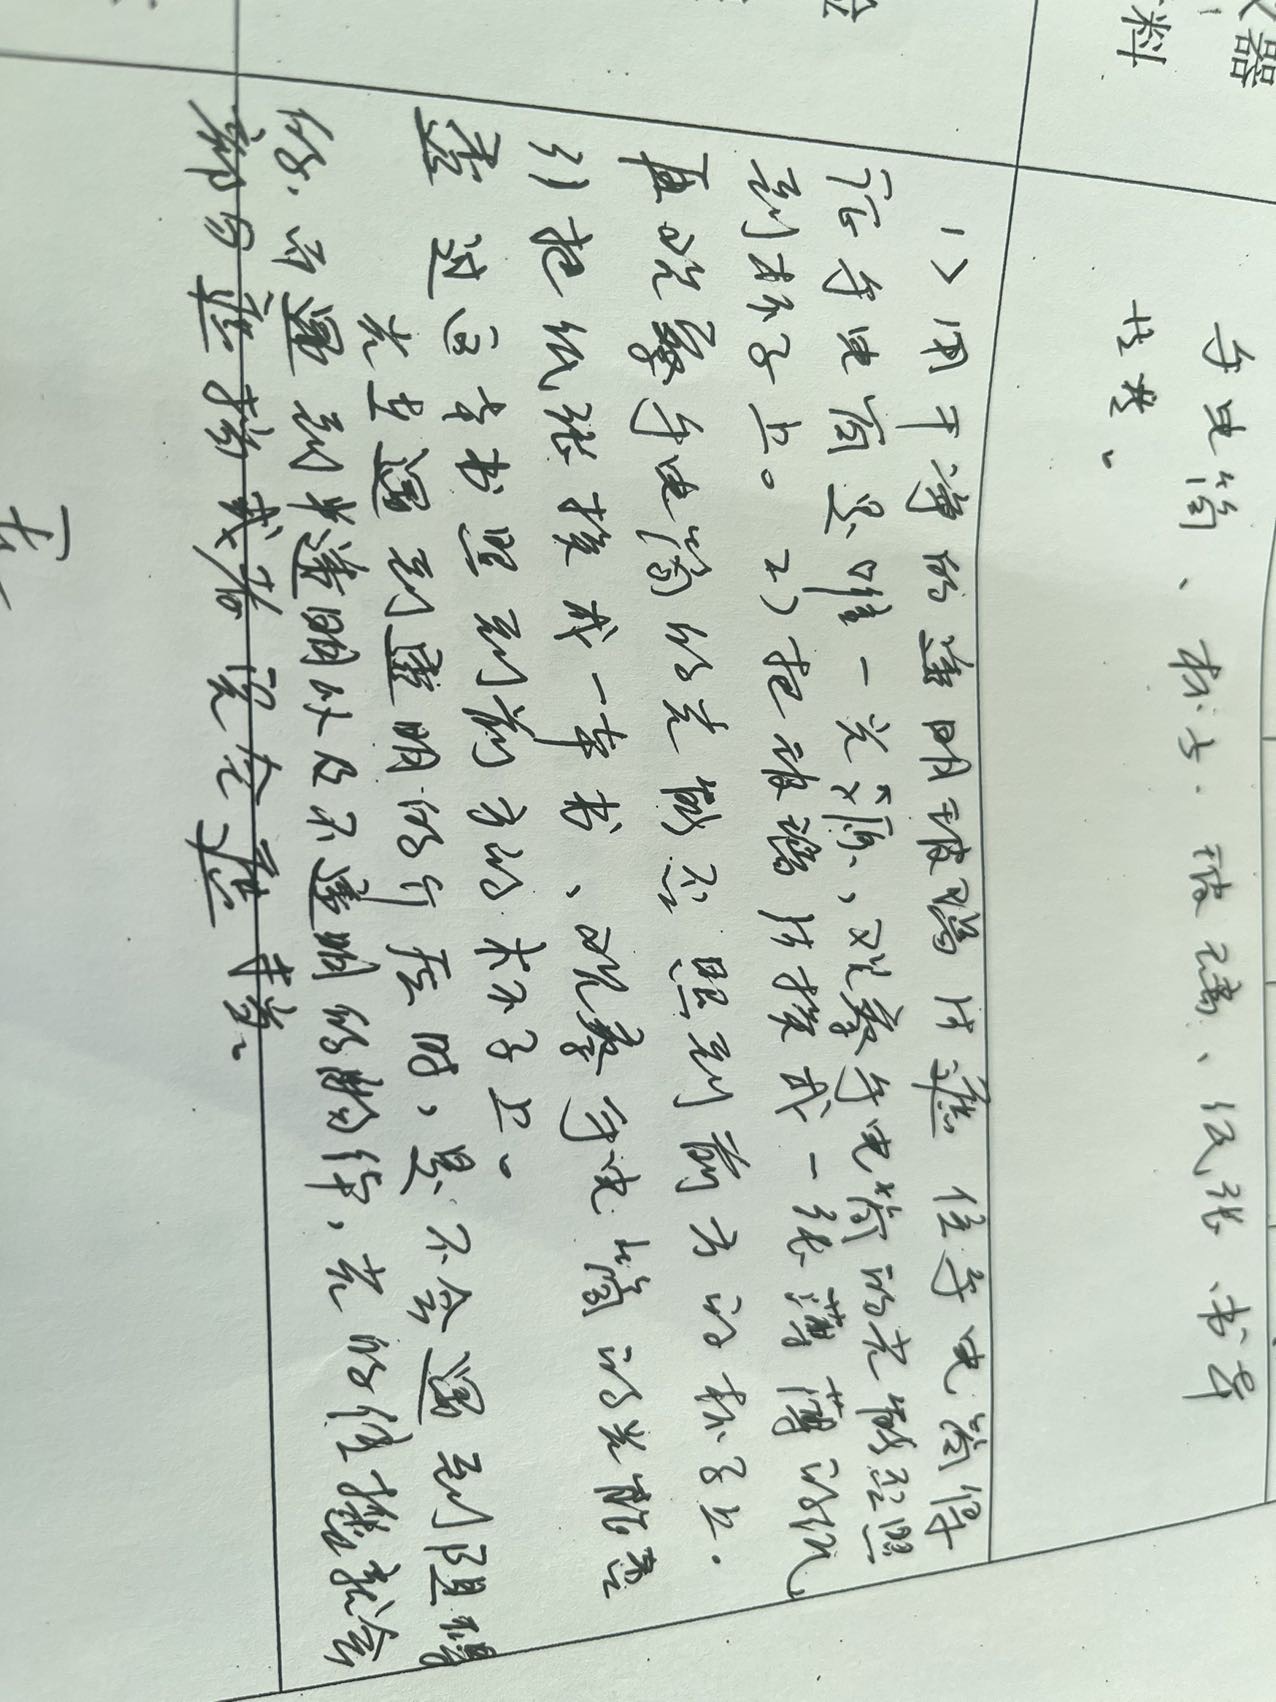 器
料
手电筒、杯子、玻璃、纸张、书本
等等。
1)用干净的透明玻璃片遮住手电筒保
证手电筒是唯一光源,观察手电筒的光能否照
到杯子上。2)把玻璃片换成一张薄薄的纸
再观察手电筒的光能否照到前方的杯子上.
3)把纸张换成一本书、观察手电筒的光能否
透过这本书照到前方的杯子上。
光在遇到透明的介质时,是不会遇到阻碍
的、而遇到半透明以及不透明的物体,光的传播就会
部分遮挡或者完全遮挡。